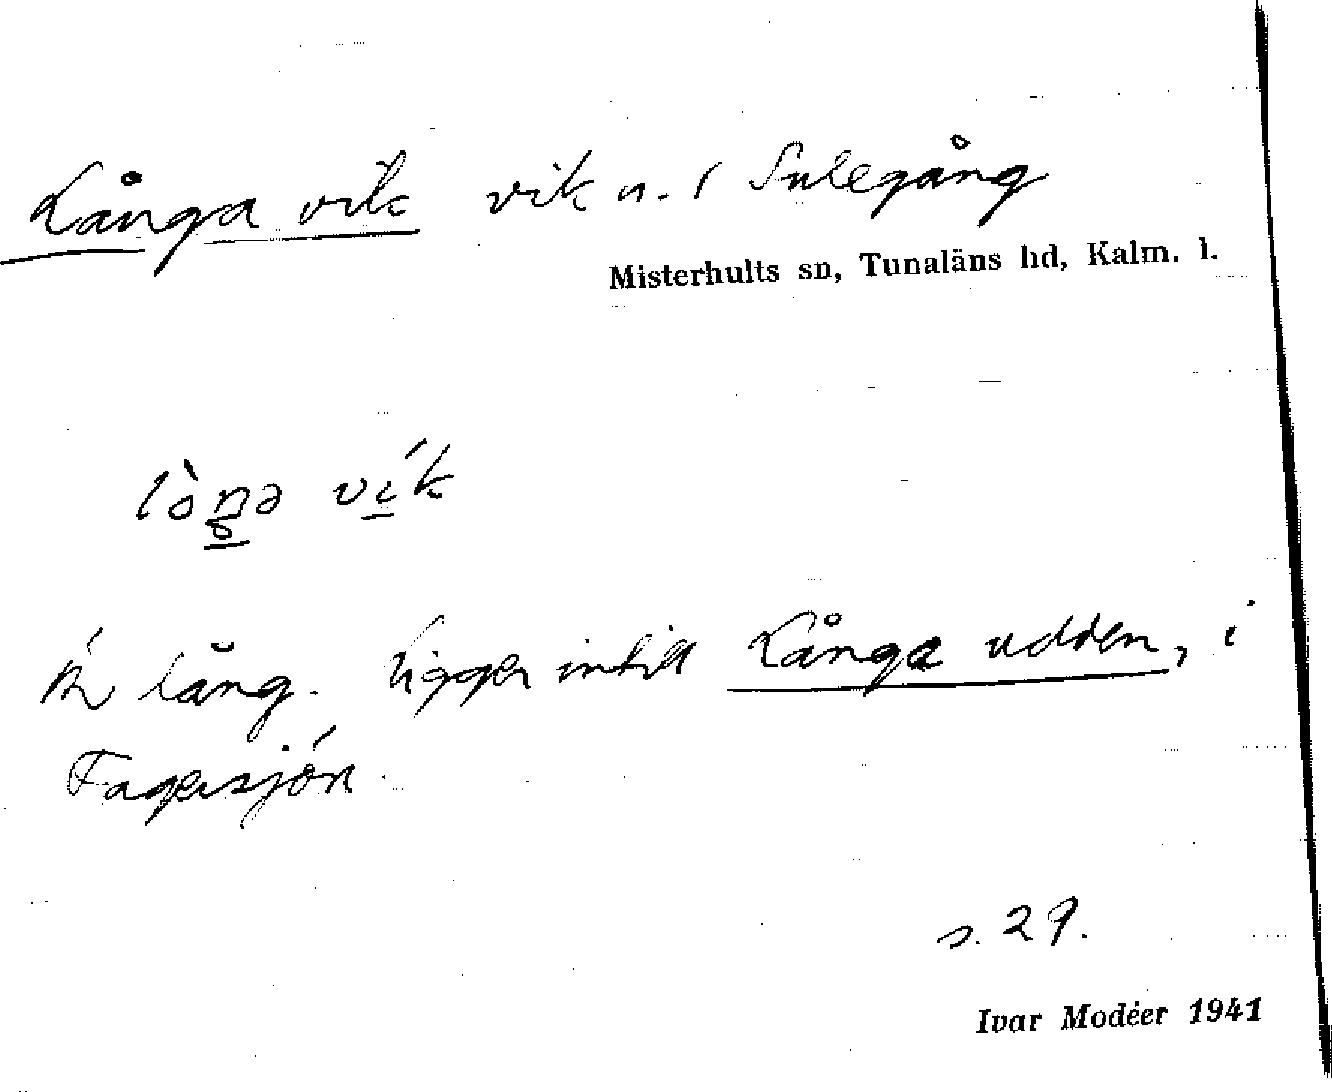 Långa vik vik u. / Sulegång
Misterhults sn, Tunaläns hd, Kalm. l.
lòŋə vík
Är lång. Ligger intill Långa udden, i
Fagersjön.
s. 29.
Ivar Modéer 1941